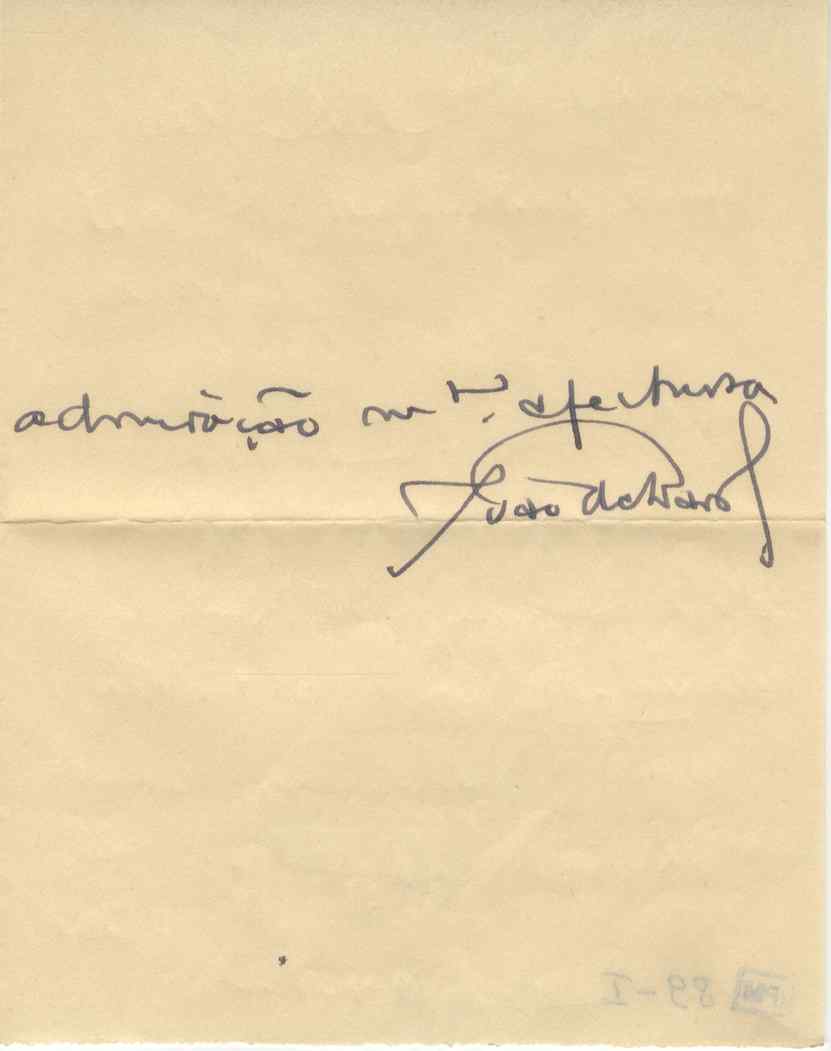 admiração m.to afectuosa
João de Barros
89-I